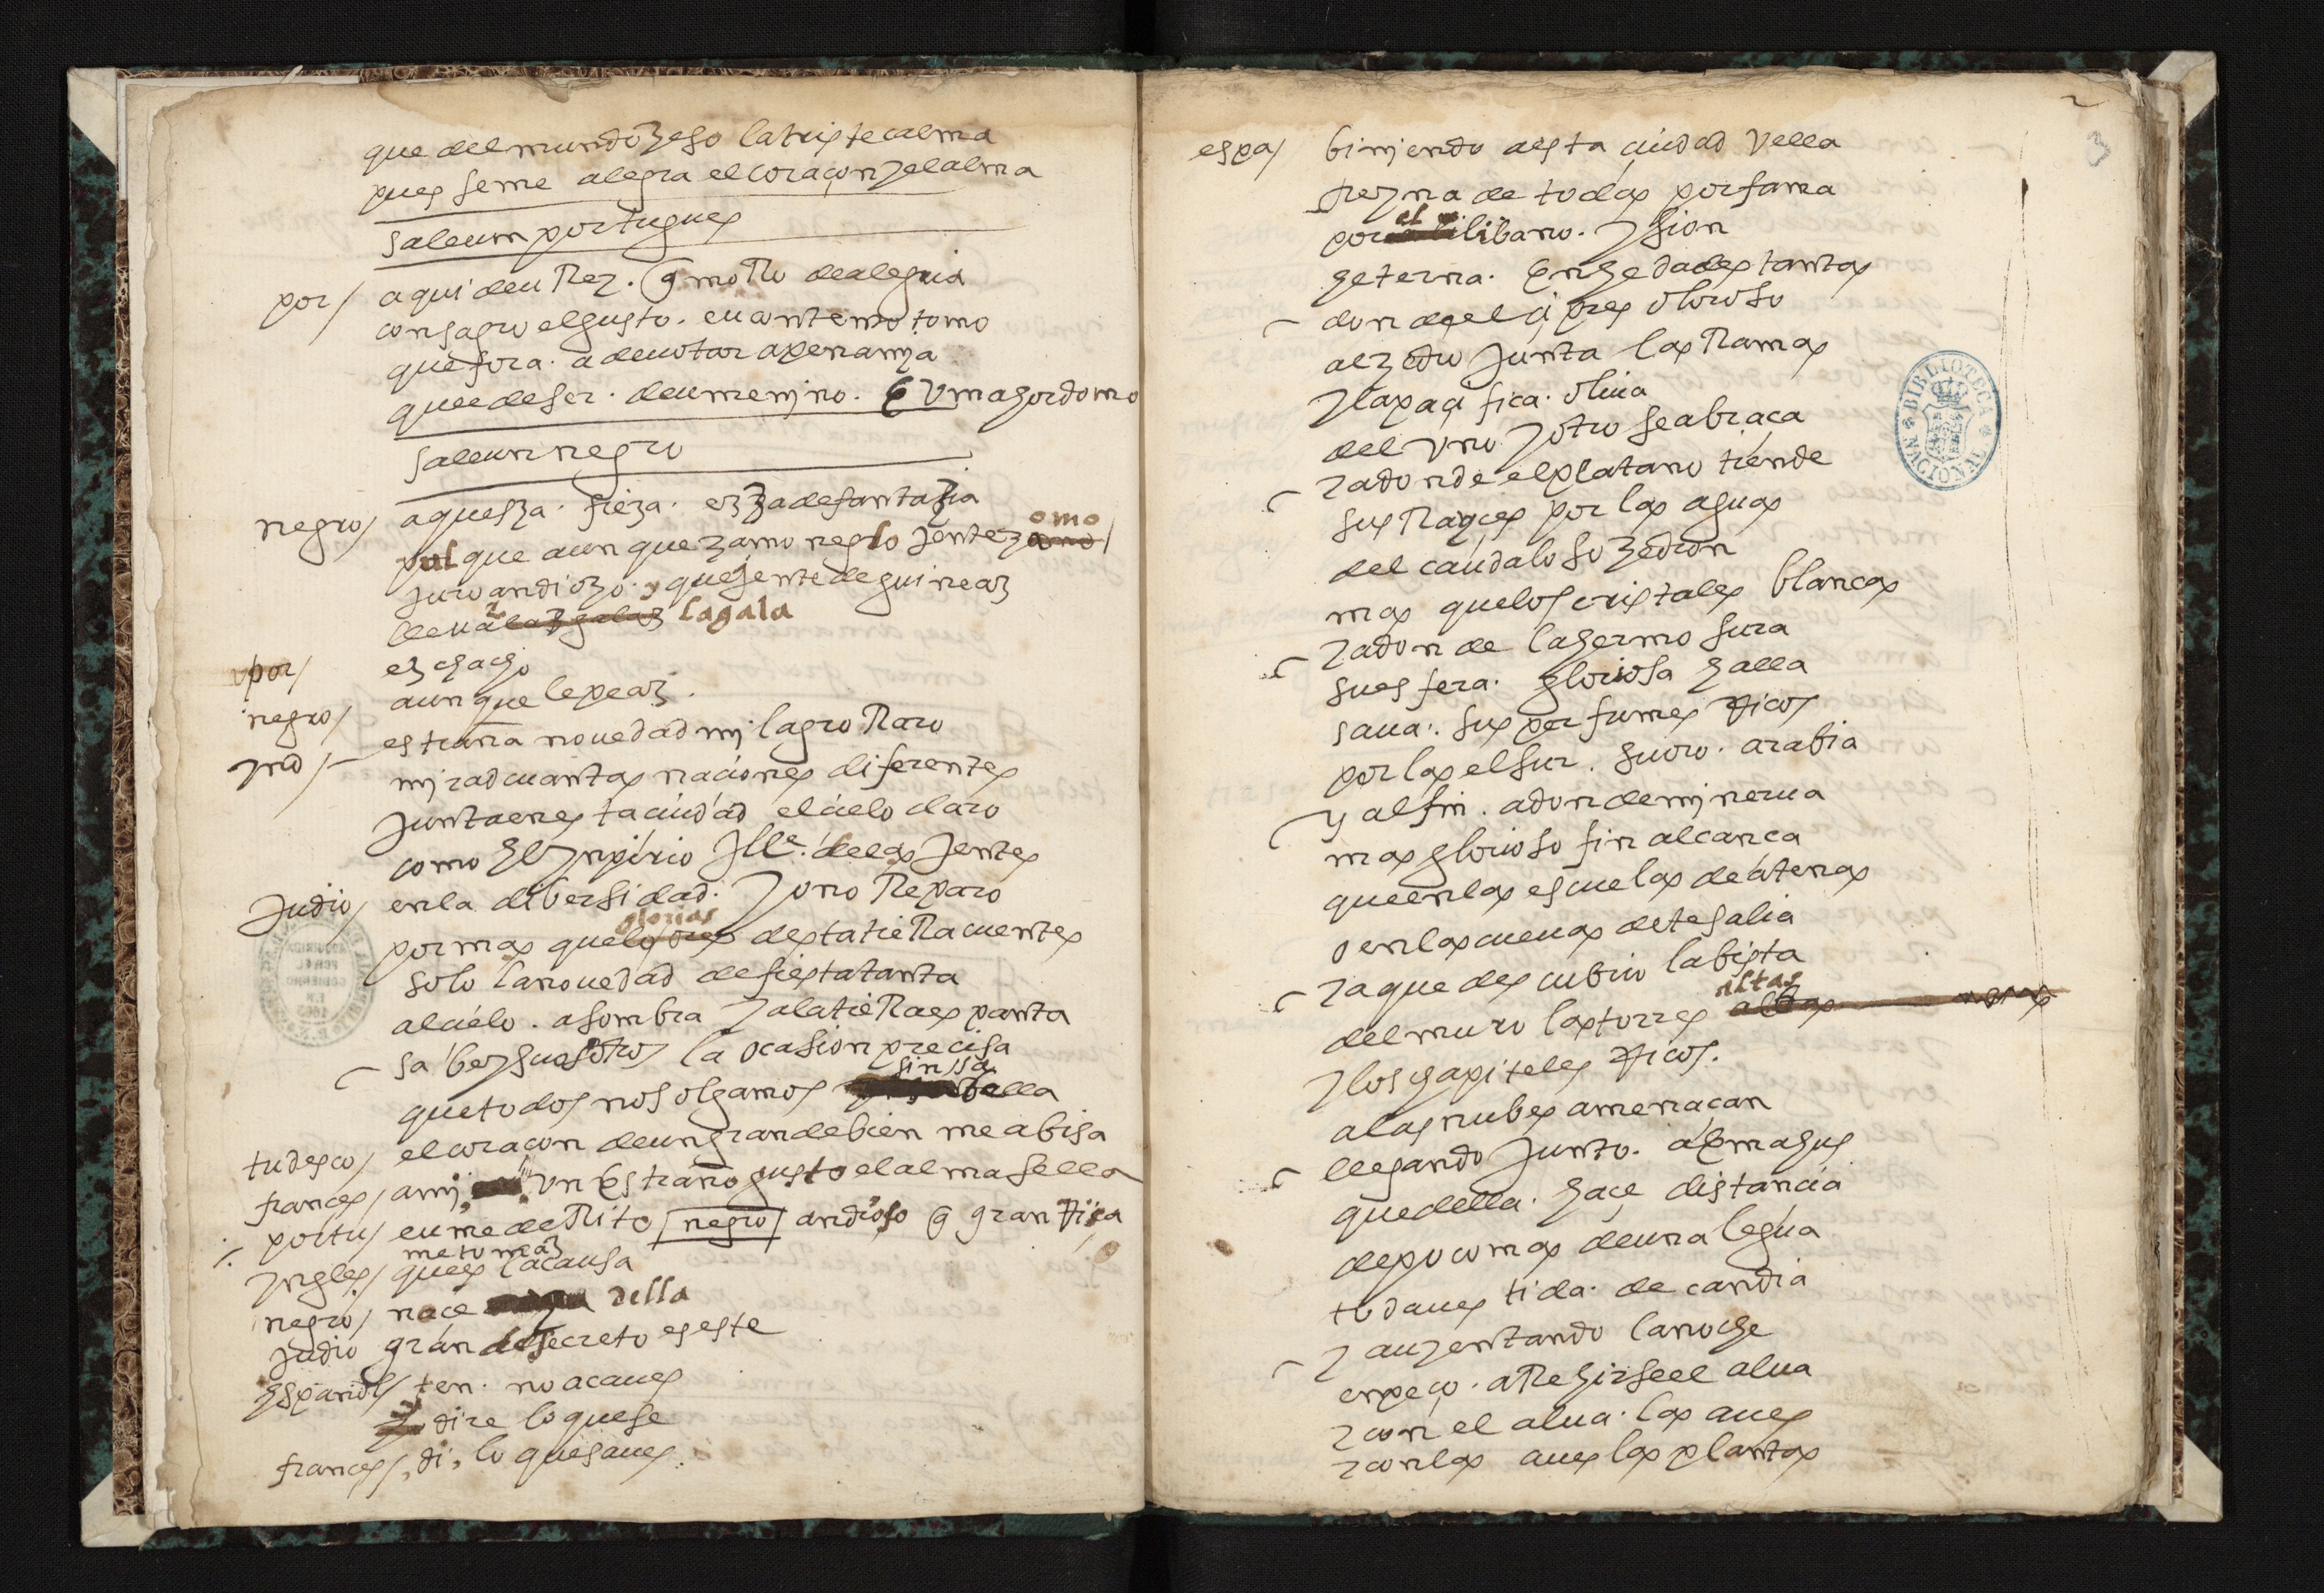 que del mundo zeso la triste calma
pues seme alegra el coraçon y el alma
sale un portugues
por/ aqui deu Rey. q moRo de alegria
consagro el gusto. eu contemo tomo
que fora. a deuotar a penamza
que e de ser. de un menino. E V mayordomo
sale un negro
negro/ aquesza. fieza. ez za de fantazia
omo
pul que aun que zamo neglo jente zomo/
juro andiozo. y que jente de guineaz
lleua laz galaz la gala
por/ ez chacho
negro/ aunque le peaz.
ynd/ estraña nouedad milagro Raro
mirad cuantas naciones diferentes
junta en esta ciudad el cielo claro
como el ynpirio Jlle. de las jentes
Judio/ en la dibersidad. yo no Reparo
glorias
por mas que los desta tieRa cuentes
solo la nouedad de fiesta tanta
al cielo. asombra y a la tieRa espanta
sabeys uosotros la ocasion precisa
sin ssa
que todos nos olgamos bella
tudesco/ el coraçon de un grande bien me abisa
frances/ a mi un Estraño gusto el alma sella
portu/ eu me deRito /negro/ andioso q gran Risa
me tomaz
yngles/ que es la causa
negro/ nace della
judio gran secreto es este
español/ ten. no acaues
dire lo que se
frances/ di, lo que saues.
2
3
espa/ biniendo a esta ciudad Vella
Reyna de todas por fama
el
por libano. y sion
y eterna. En hedades tantas
donde el cipres oloroso
al zedro junta las Ramas
y la pacifica. oliua
del Vno y otro se abraca
y a donde el platano tiende
sus Rayces por las aguas
del caudaloso zedron
mas que los cristales blancas
y a donde la hermosura
su esfera. gloriosa halla
saua. sus perfumes Ricos
por las el sur. su oro. arabia
y al fin. a donde minerua
mas glorioso fin alcanca
que en las escuelas de atenas
o en las cueuas de tesalia
y a que descubrio la bista
altas
del muro las torres altas
y los chapiteles Ricos.
a las nubes amenacan
llegando junto. a Emahus
que della. haçe distancia
de poco mas de una legua
toda uestida. de candia
y auyentando la noche
enpeço. a Rehirse el alua
y con el alua. las aues
y con las aues las plantas
BIBLIOTECA NACIONAL